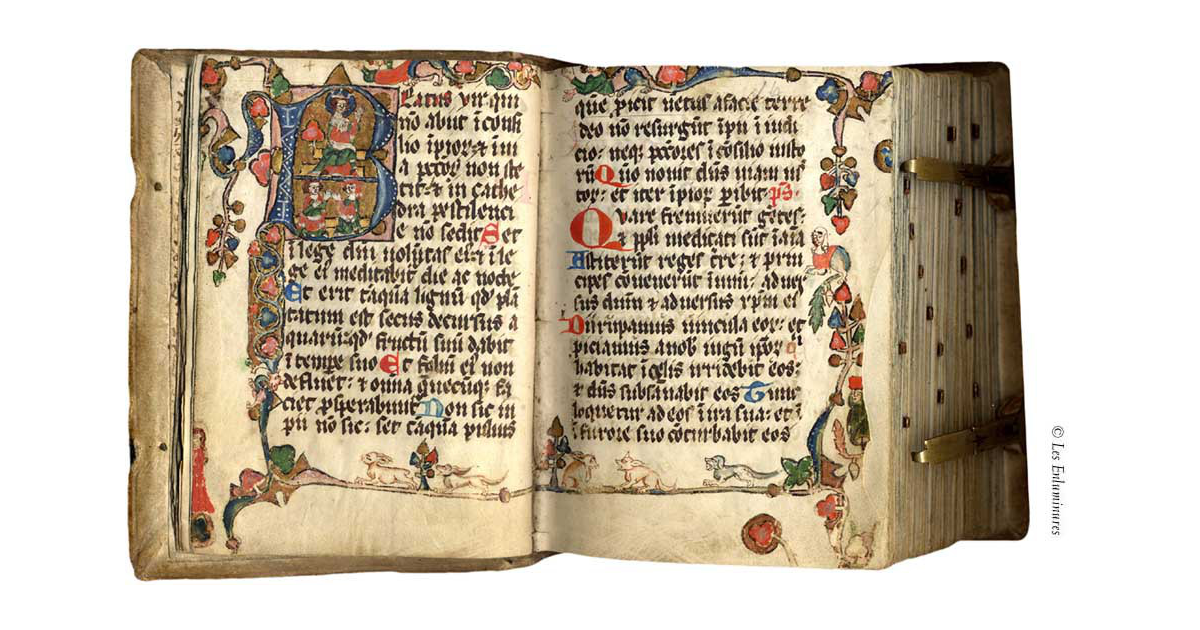 Beatus vir qui
nō abiit ī consi
lio īpiorꝝ ⁊ in ui
a pctōꝝ non ste
tit: ⁊ in cathe
dra pestilenci
e nō sedit Set
ī lege dnī uolūtas eiꝰ ⁊ ī le
ge eiꝰ meditabit̄ die ac nocte
Et erit tāquā lignū qd̓ plā
tatum est secus decursus a
quarū: qd̓ fructū suū dabit
ī tempe suo Et foliū eiꝰ non
defluet: ⁊ omīa q̄ecūq; fa
ciet ꝓsperabunt̄ Non sic im
pii nō sic: set tāquā puluis
quē ꝓicit uētus a facie terre
Ideo nō resurgūt īpii ī iudi
cio: neq; pctōres ī cōsilio iusto
rū Quō nouit dn̄s uiam ius
torꝝ: et iter īpiorꝝ ꝑibit ps̄
Quare fremuerūt gētes:
⁊ ppl̄i meditati sūt īania
Astiterūt reges tr̄e: ⁊ prin
cipes cōuenerūt ī unū: aduer
sus dnm̄ ⁊ aduersus xp̄m eiꝰ
Dirūpamus uincula eorꝝ: et
ꝓiciamus a nob̄ iugū ipōrꝝ
habitat ī celis irridebit eos:
⁊ dn̄s subsānabit eos Tunc
loquetur ad eos ī ira sua: et ī
furore suo cōturbabit eos
© Les Enluminures